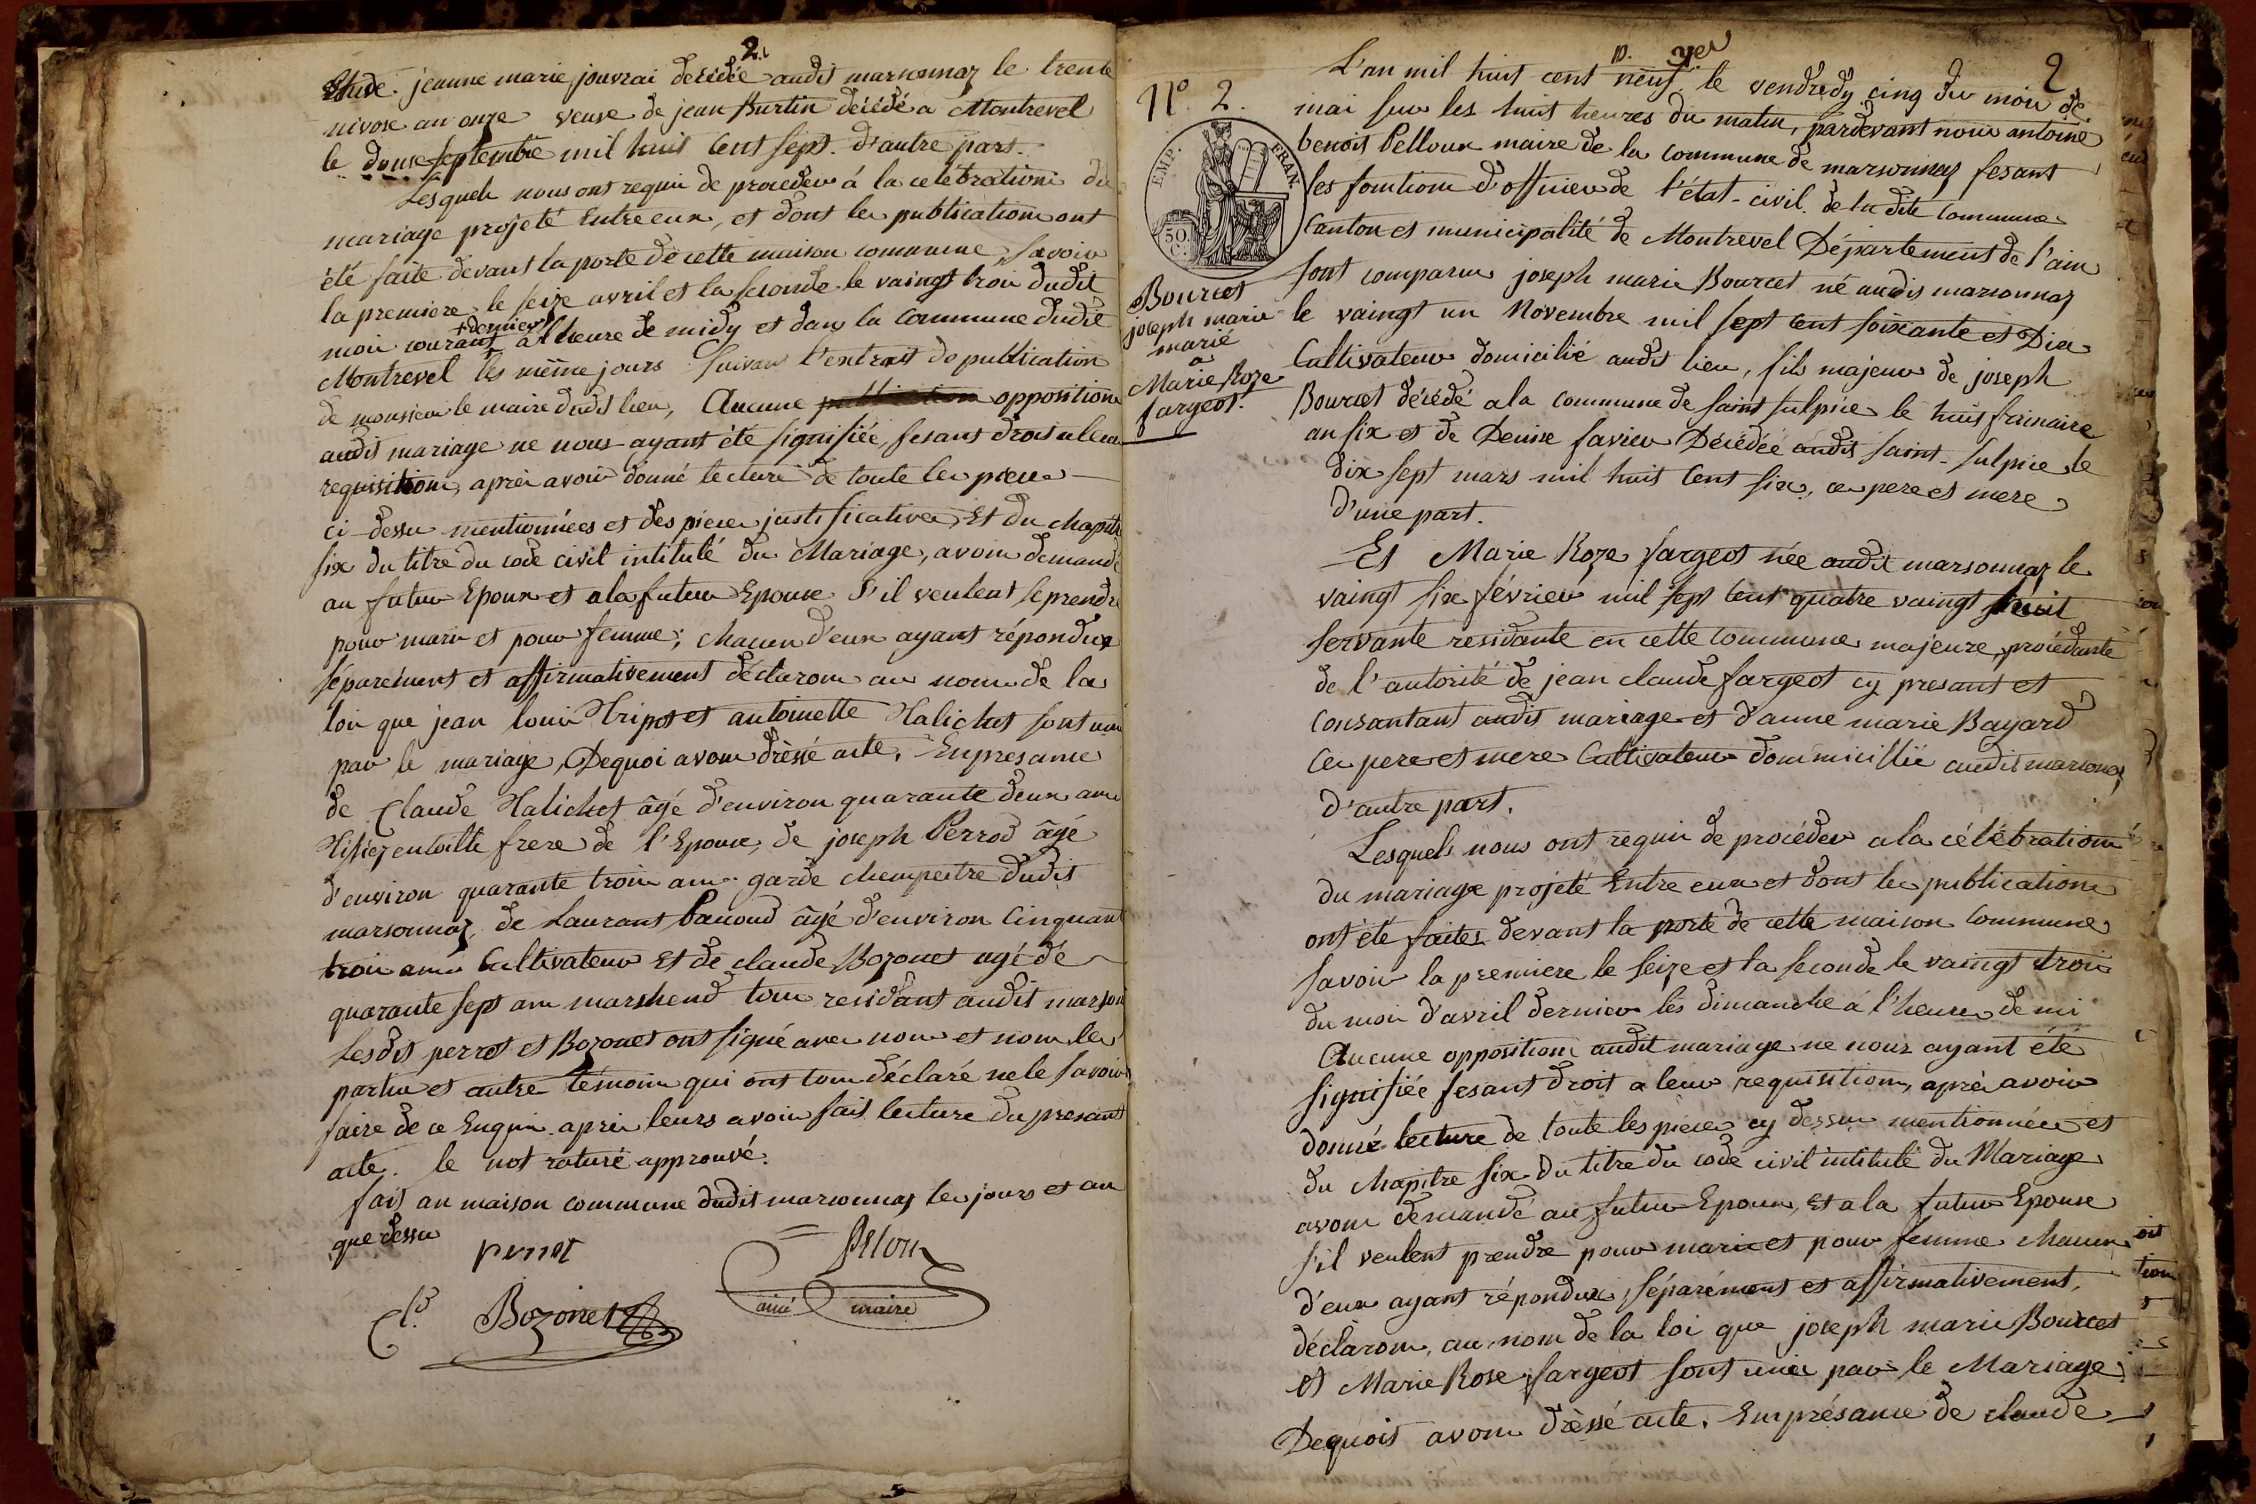 2.
Et de jeanne marie jouvrai décédée audit marsonnaz le trente
nivose an onze veuve de jean Burtin décédé a Montrevel
le douse septembre mil huit Cent sept. d'autre part.
Lesquels nous ont requis de proceder á la celebration du
mariage projeté Entre eux, et dont les publications ont
été faite devant la porte de cette maison commune, savoir
la premiere le seize avril et la seconde le vaingt trois dudit
+ dernier
mois courant à l'heure de midy et dans la Commune dudit
Montrevel les même jours suivant l'extrait de publication
de monsieur le maire dudit lieu, Aucune opposition
audit mariage ne nous ayant été signifiée, fesant droit a leur
requisition, après avoir donné lecture de toute les pieces
ci-dessu mentionnées et des pieces justificatives, Et du chapitre
six du titre du code civil intitulé du Mariage, avons demandé
au futur Epoux et a la future Epouse s'il veulent se prendre
pour mari et pour femme; chacun d'eux ayant répondux
séparément et affirmativement déclarons au nom de la
loi que jean louis Tripot et antoinette Halichet sont unis
par le mariage, Dequoi avons dressé acte, En presance
de Claude Halichet âgé d'environ quarante deux ans
Tissiez en toille frere de l'Epouse, de joseph Perrod âgé
d'environ quarante trois ans garde champestre dudit
marsonnaz, de Laurant Pauoud âgé d'environ Cinquante
trois ans Cultivateur Et de claude Bozonet agé de
quarante sept ans marshend tous residant audit marson
Lesdit perrot et Bozonet ont signé avec nous et non les
parties et autre témoins qui ont tous déclaré ne le savoir
faire de ce Enquis après leurs avoir fait lecture du presant
acte. le mot raturé approuvé.
fait an maison commune dudit marsonnaz les jours et an
que dessu
perrot
Pelloux
ainé maire
Cl. Bozonet
2
p. 3.e
N.º 2.
L'an mil huit cent neuf le vendredy cinq du mois de
mai sur les huit heures du matin, pardevant nous antoine
benoit Pelloux maire de la commune de marsonnaz fesant
EMP. FRAN.
50 C.
les fonctions d'officier de l'état-civil de la dite commune
Canton et municipalité de Montrevel Département de l'ain
sont comparus joseph marie Bourcet né audit marsonnaz
Bourcet
joseph marie
marié
a
Marie Roze
fargeot.
le vaingt un Novembre mil sept cent soixante et Dix
Cultivateur domicilié audit lieu, fils majeur de joseph
Bourcet décédé a la commune de saint sulpice le huit frimaire
an six et de Denise favier Décédée audit saint-sulpice le
dix sept mars mil huit Cent six, ces pere et mere
d'une part.
Et Marie Roze fargeot née audit marsonnaz le
vaingt six février mil sept cent quatre vaingt
servante residante en cette commune majeure, procédante
de l'autorité de jean claude fargeot cy presant et
consantant audit mariage et d'anne marie Bayard
ces pere et mere Cultivateur dommicillié audit marsonaz
d'autre part.
Lesquels nous ont requis de procéder a la célébration
du mariage projeté Entre eux et dont les publications
ont été faites devant la porte de cette maison Commune
savoir la premiere le seize et la seconde le vaingt trois
du mois d'avril dernier les dimanche á l'heure de mi
Aucune opposition audit mariage ne nous ayant été
signifiée fesant droit a leur requisition, après avoir
donné lecture de toute les pieces cy dessu mentionnées et
du chapitre six du titre du code civil intitulé du Mariage
avons demandé au futur Epoux, Et a la futur Epouse
s'il veulent prendre pour mari et pour femme chacun
d'eux ayant répondux, séparément et affirmativement,
déclarons, au nom de la loi que joseph marie Bourcet
et Marie Rose fargeot sont unis par le Mariage
Dequois avons dressé acte. En présance de claude